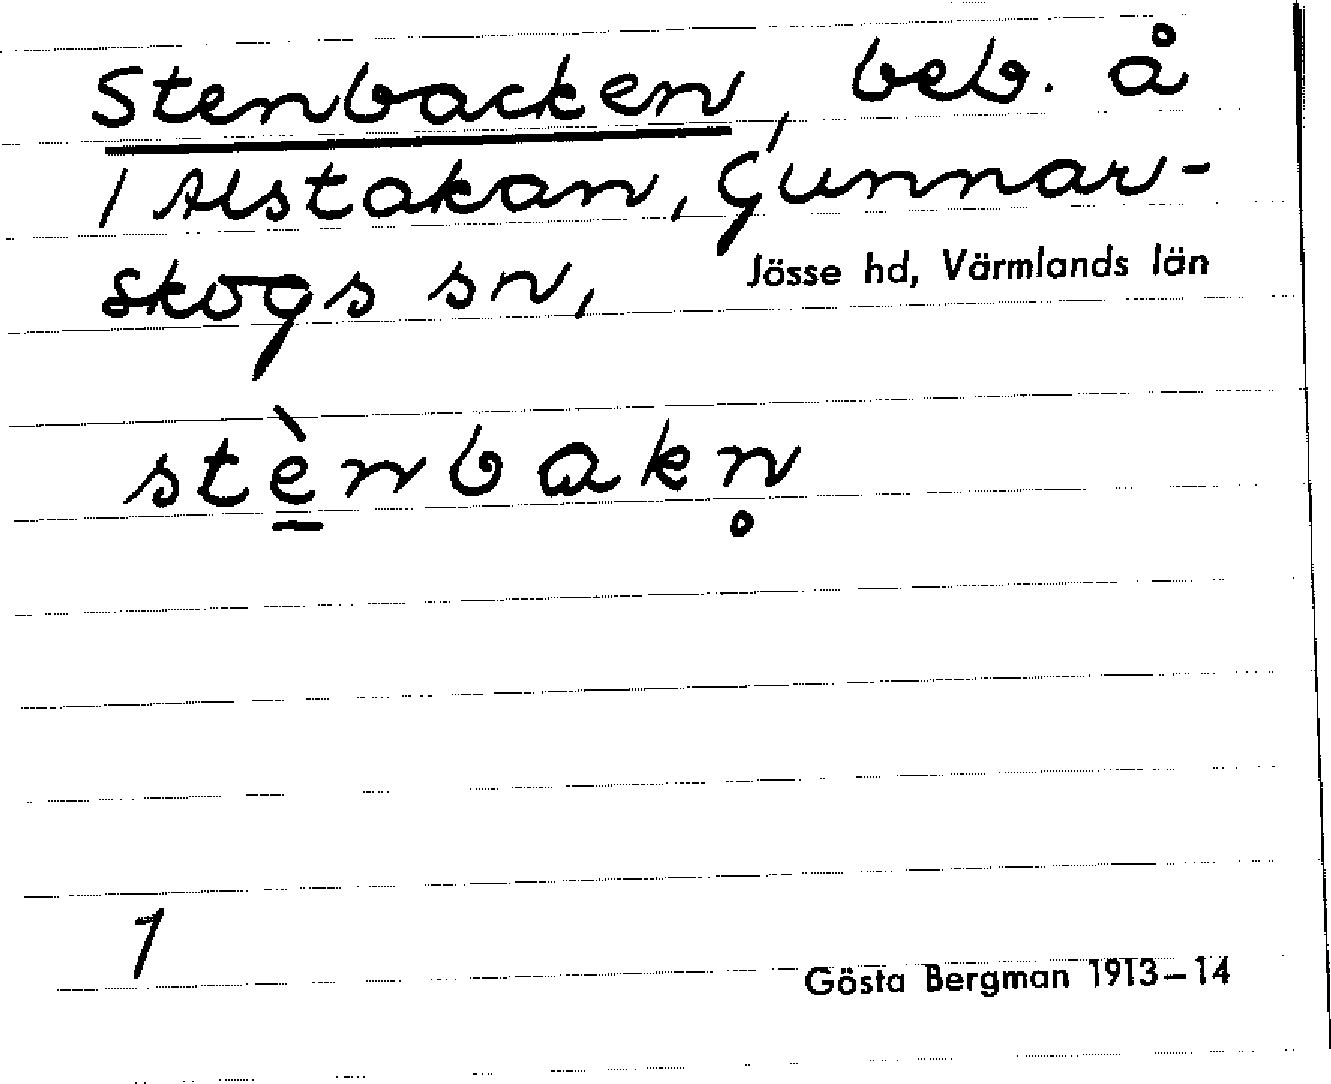 Stenbacken, beb. å
1 Alstakan, Gunnar-
skogs sn, Jösse hd, Värmlands län
stè̱nbakn̥
1
Gösta Bergman 1913–14